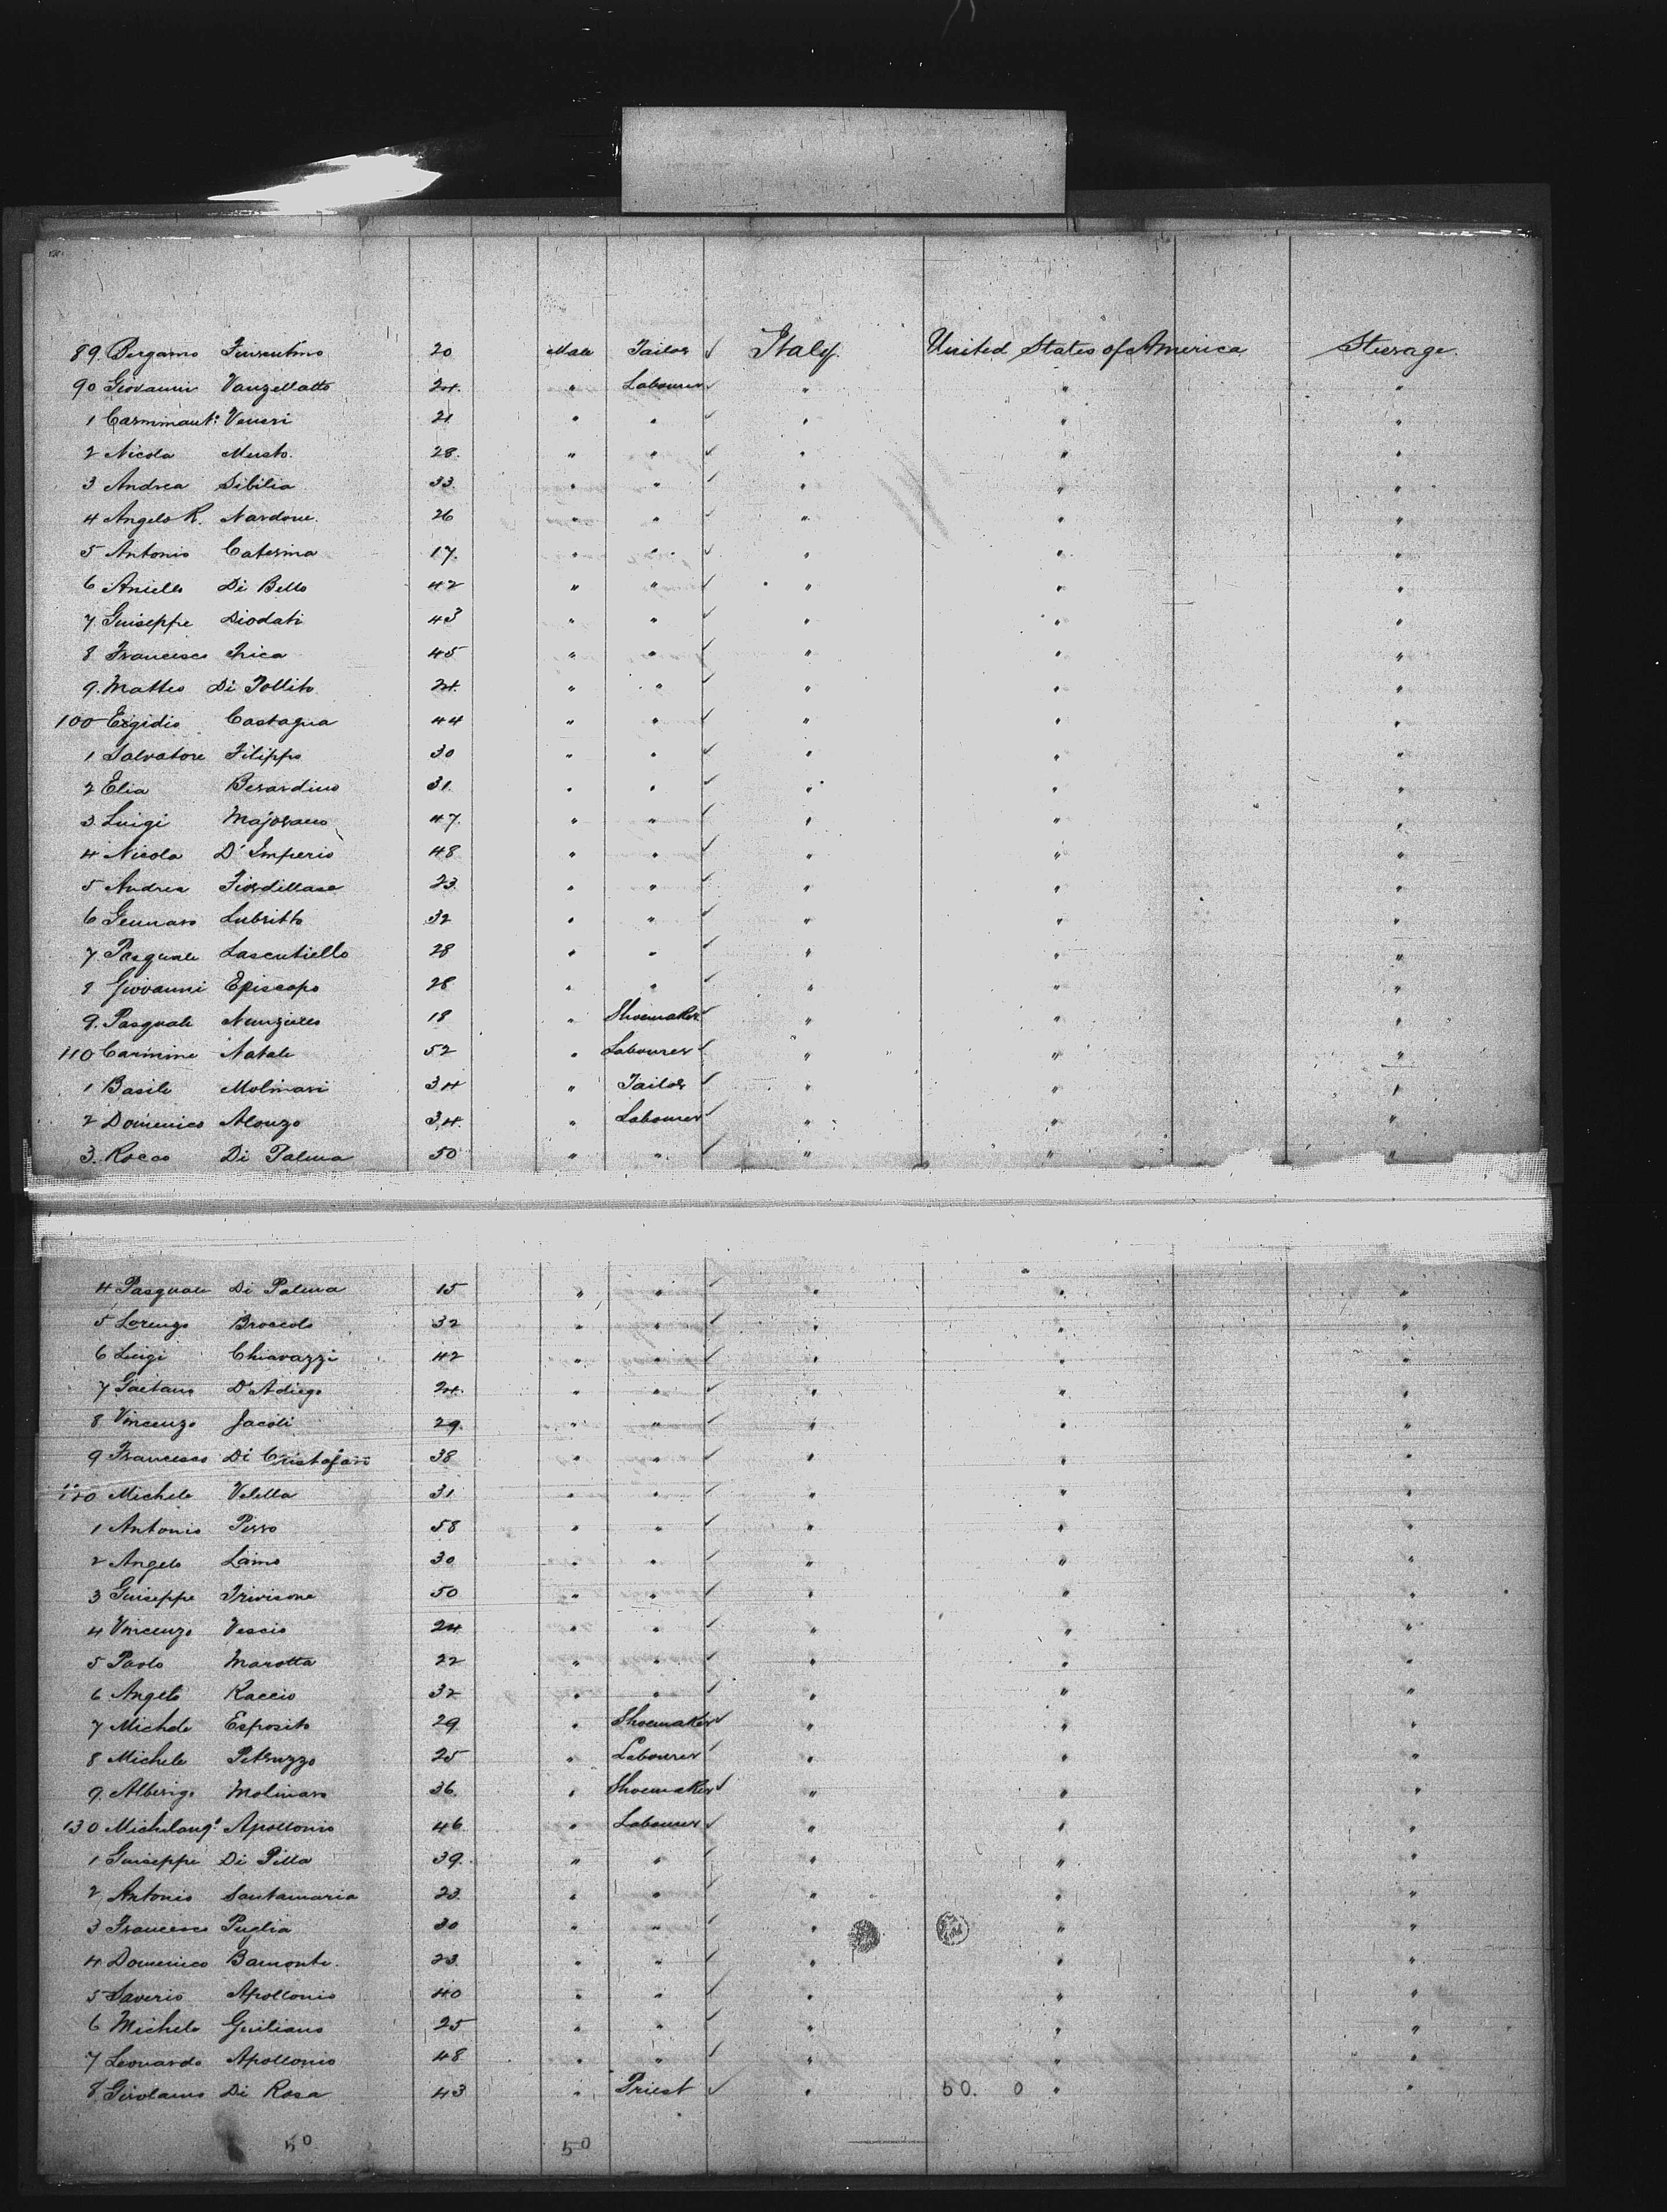 89. Bergamo Fiorentino 20 Male Tailor ✓ Italy. United States of America Steerage.
90 Giovanni Vanzellatto 24. " Labourer ✓ " " "
1 Carminant: Veneri 21 " " ✓ " " "
2 Nicola Musto. 28. " " ✓ " " "
3 Andrea Sibilia 33 " " ✓ " " "
4 Angelo R. Nardone. 26 " " ✓ " " "
5 Antonio Caterina 17. " " ✓ " " "
6 Aniello Di Bello 42 " " ✓ " " "
7. Guiseppe Diodati 43 " " ✓ " " "
8 Francesco Trica 45 " " ✓ " " "
9. Matteo Di Pollito 24. " " ✓ " " "
100 Eigidio Castagna 44 " " ✓ " " "
1 Salvatore Filippo 30 " " ✓ " " "
2 Elia Berardino 31. " " ✓ " " "
3. Luigi Majorano 47. " " ✓ " " "
4 Nicola D'Imperio 48 " " ✓ " " "
5 Andrea Fiordellase 23 " " ✓ " " "
6 Gennaro Lubritto 32 " " ✓ " " "
7. Pasquale Lascutiello 28 " " ✓ " " "
8 Giovanni Episcopo 28 " " ✓ " " "
9. Pasquale 18 " Shoemaker ✓ " " "
110 Carmine Natale 52 " Labourer ✓ " " "
1 Basile Molinari 34 " Tailor ✓ " " "
2 Domenico Alonzo 34. " Labourer ✓ " " "
3. Rocco Di Palma 50 " " ✓ " " "
4 Pasquale Di Palma 15 " " ✓ " " "
5 Lorenzo Broccolo 32 " " ✓ " " "
6 Luigi Chiavazzi 42 " " ✓ " " "
7 Gaetano D'Adiego 24. " " ✓ " " "
8 Vincenzo Jacoli 29. " " ✓ " " "
9 Francesco Di Cristofaro 38 " " ✓ " " "
120 Michele Velella 31 " " ✓ " " "
1 Antonio Pirro 58 " " ✓ " " "
2 Angelo Laino 30 " " ✓ " " "
3 Guiseppe Trivisone 50 " " ✓ " " "
4 Vincenzo Vescio 24 " " ✓ " " "
5 Paolo Marotta 22 " " ✓ " " "
6 Angelo Raccio 32 " " ✓ " " "
7 Michele Esposito 29 " Shoemaker ✓ " " "
8 Michele Petruzzo 25 " Labourer ✓ " " "
9. Alberigo Molinaro 36. " Shoemaker ✓ " " "
130 Michelang° Apollonio 46 " Labourer ✓ " " "
1 Guiseppe Di Pilla 39. " " ✓ " " "
2 Antonio Santamaria 23 " " ✓ " " "
3 Francesco Puglia 30 " " ✓ " " "
4 Domenico Bamonte. 23. " " ✓ " " "
5 Saverio Apollonio 40 " " ✓ " " "
6 Michele Guiliano 25 " " ✓ " " "
7 Leonardo Apollonio 48 " " ✓ " " "
8. Girolamo Di Rosa 43 " Priest ✓ " 50. 0 " "
50 50